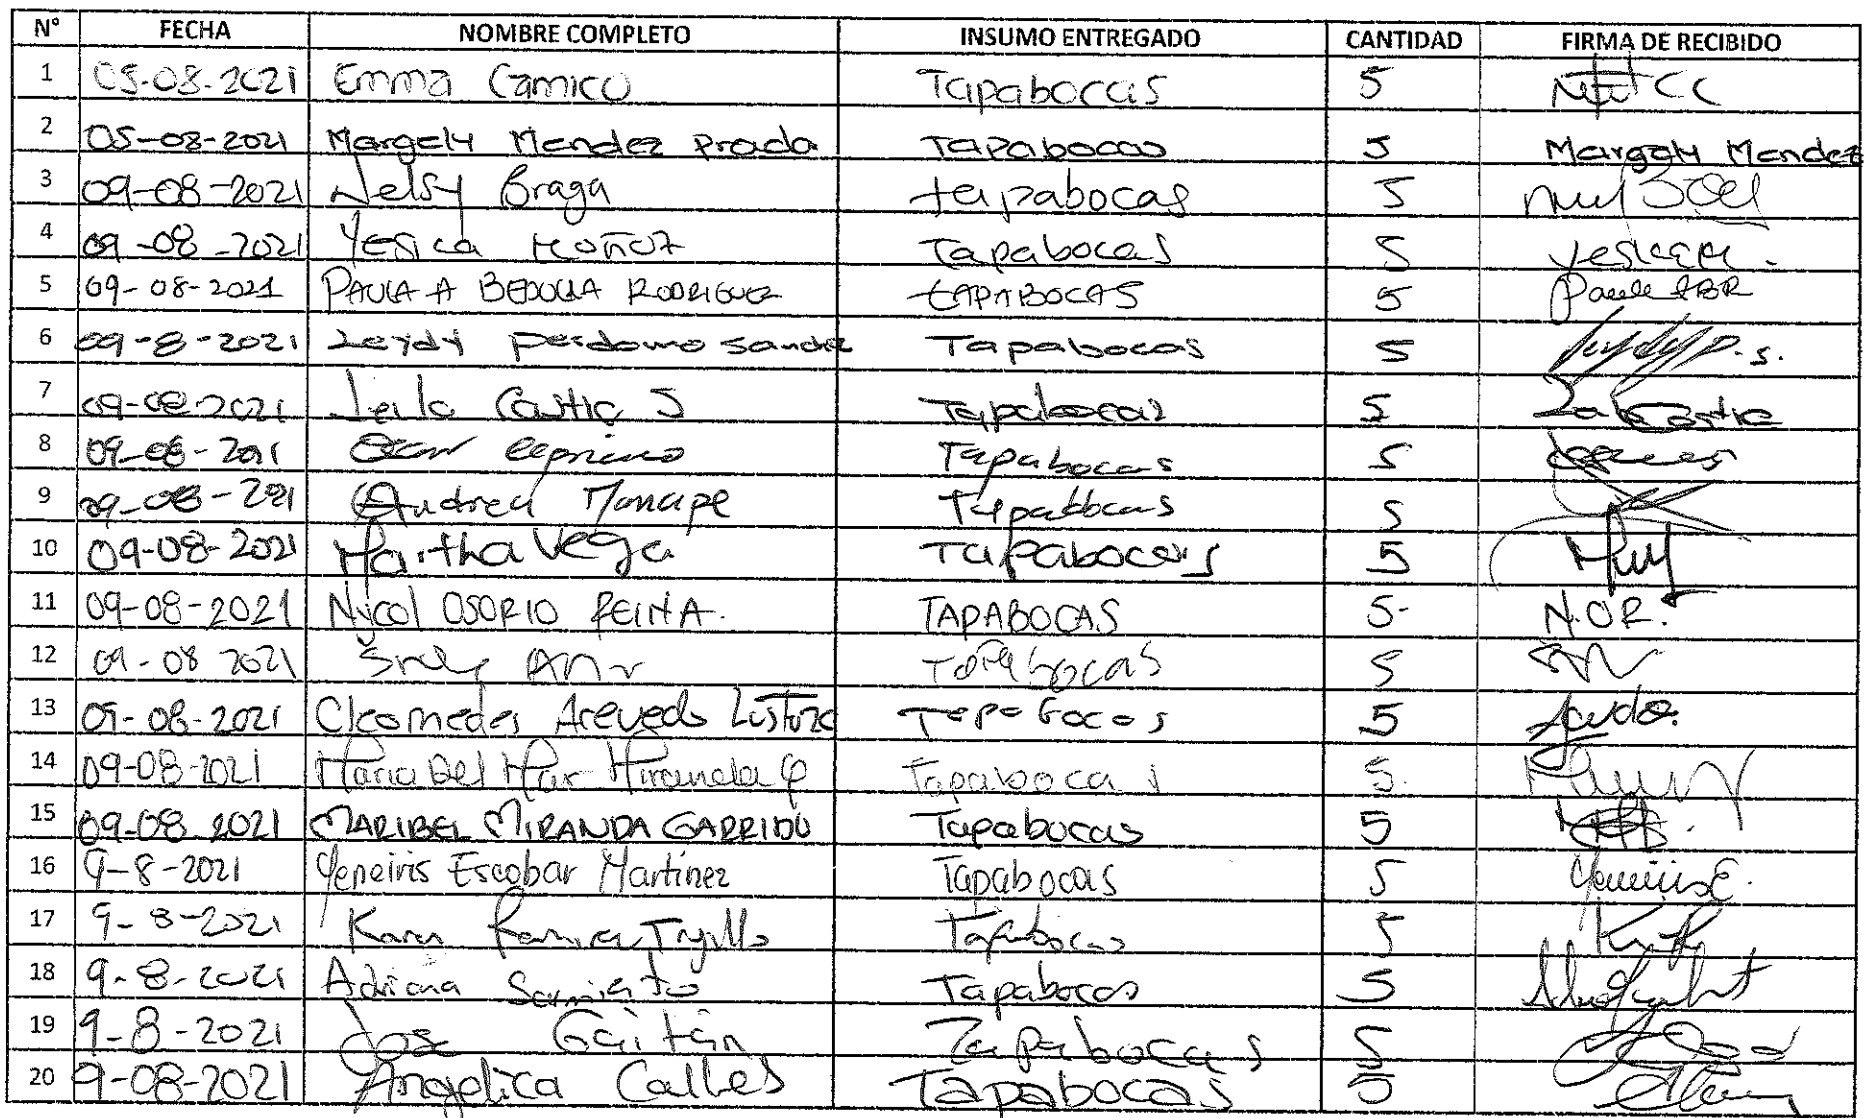 N° FECHA NOMBRE COMPLETO INSUMO ENTREGADO CANTIDAD FIRMA DE RECIBIDO
1 05-08-2021 Emma Camico Tapabocas 5
2 05-08-2021 Margely Mendez Prada Tapabocas 5 Margely Mendez
3 09-08-2021 Nelsy Braga tapabocas 5
4 09-08-2021 Yesica Muñoz Tapabocas 5
5 09-08-2021 PAULA A BEDOYA RODRIGUEZ TAPABOCAS 5
6 09-8-2021 Leydy perdomo Tapabocas 5
7 09-08-2021 Leila Castro S Tapabocas 5
8 09-08-2021 Tapabocas 5
9 09-08-2021 Andrea Tapabocas 5
10 09-08-2021 Martha Vega Tapabocas 5
11 09-08-2021 Nycol OSORIO REINA. TAPABOCAS 5 N.O.R.
12 09-08 2021 Tapabocas 5
13 09-08-2021 Cleomedes Acevedo Tapabocas 5
14 09-08-2021 Maria Del Mar Miranda Tapabocas 5
15 09-08-2021 MARIBEL MIRANDA GARRIDO Tapabocas 5
16 9-8-2021 Yeneiris Escobar Martinez Tapabocas 5
17 9-8-2021 Karen Ramirez Trujillo Tapabocas 5
18 9-8-2021 Adriana Sarmiento Tapabocas 5
19 9-8-2021 Jose Gaitán Tapabocas 5
20 9-08-2021 Angelica Calles Tapabocas 5